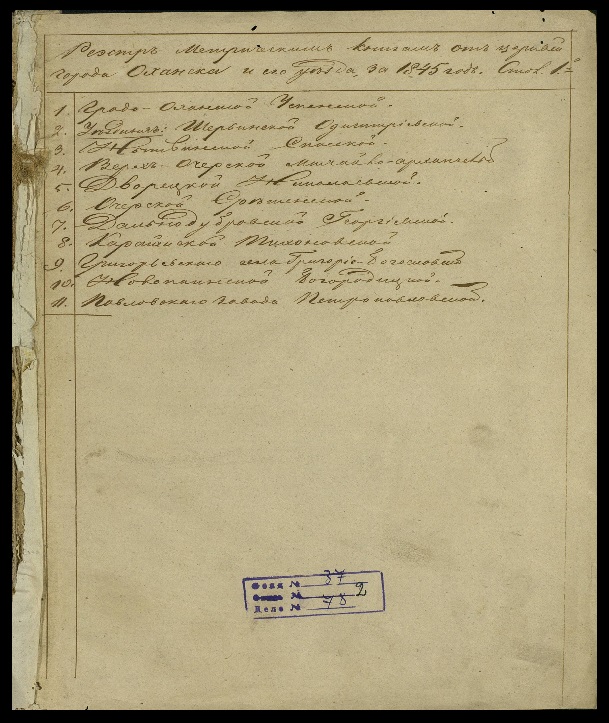 Реэстръ Метрическимъ книгамъ отъ церквей
города Оханска и его уѣзда за 1845 годъ. Столъ 1й
1. Градо-Оханской Успенской.
2. Уѣздныхъ: Шерьинской Одигитріевской.
3. Нытвинской Спасской.
4. Верхъ-Очерской Михайло-архангельской
5. Дворецкой Николаевской.
6. Очерской Срѣтенской.
7. Дальнодубровской Георгіевской.
8. Карагайской Тихоновской
9. Григорьевскаго села Григоріе-Богословской
10. Новопаинской Богородицкой.
11. Павловскаго завода Петропавловской.
Фонд № 37
Опись № 2
Дело № 78